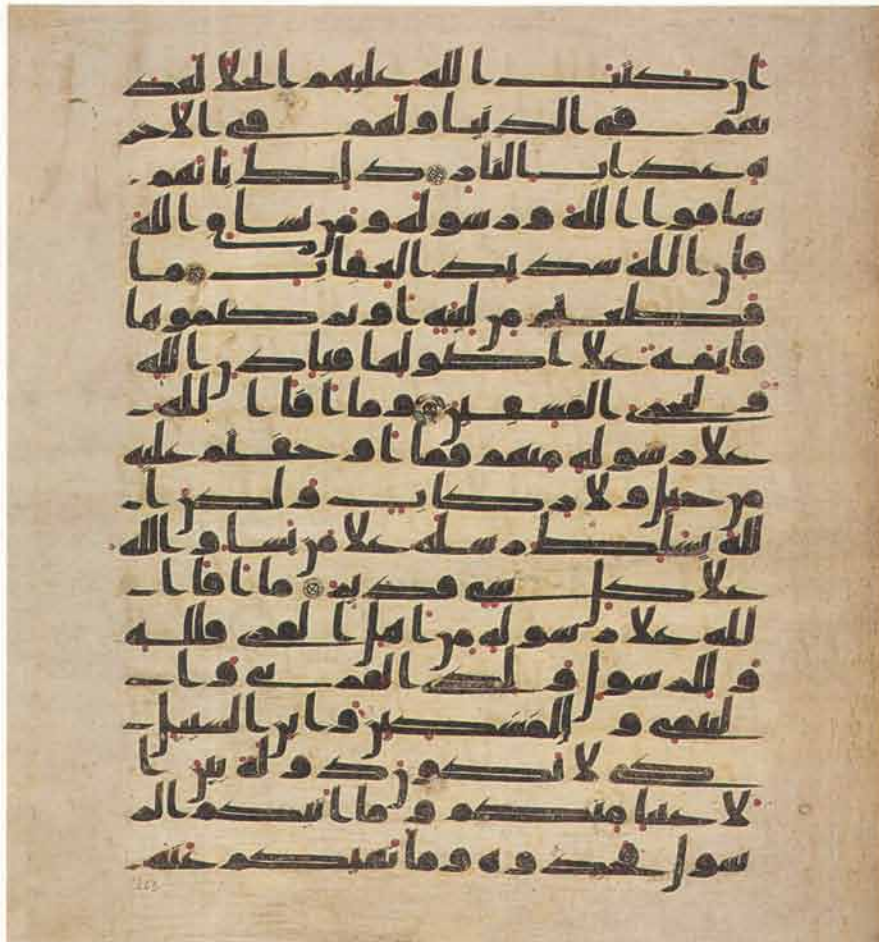 ان كتب الله عليهم الجلا لعذ
بهم في الدنيا ولهم في الاخر
ه عذاب النار ذلك بانهم
شاقوا الله ورسوله ومن يشاق الله
فان الله شديد العقاب ما
قطعتم من لينه او تركتموها
قايمه علا اصولها فباذن الله
وليخزى الفسقين وما افا الله
علا رسوله منهم فما اوجفتم عليه
من خيل ولا ركاب ولكن ا
لله يسلط رسله علا من يشا والله
علا كل شى قدير ما افا ا
لله علا رسوله من اهل القرى فلله
وللرسول ولذى القربى وا
ليتمى والمسكين وابن السبيل
كى لا يكون دوله بين ا
لاغنيا منكم وما اتيكم الر
سول فخذوه وما نهيكم عنه